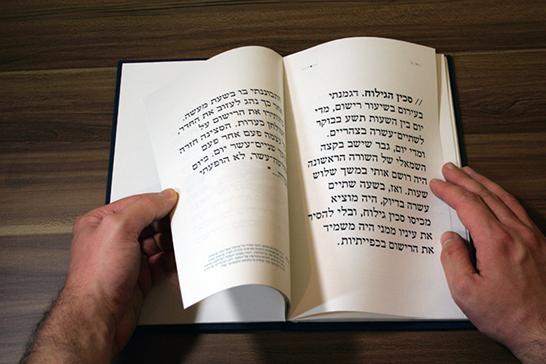 // סכין הגילוח. דגמנתי
בעירום בשיעור רישום, מדי
יום בין השעות תשע בבוקר
לשתיים־עשרה בצהריים.
ומדי יום, גבר שישב בקצה
השמאלי של השורה הראשונה
היה רושם אותי במשך שלוש
שעות. ואז, בשעה שתיים
עשרה בדיוק, היה מוציא
מכיסו סכין גילוח, ובלי להסיר
את עיניו ממני היה משמיד
את הרישום בכפייתיות.
והתבוננתי בו בשעת מעשה.
אחר כך נהג לעזוב את החדר,
להותיר את הרישום על
שולחן בערות. הסצינה חזרה
עצמה פעם אחר פעם
שנים־עשר יום. ביום
עשר, לא הופעתי